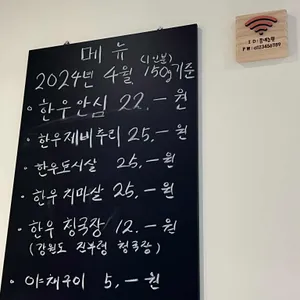 메 뉴
(1인분)
2024년 4월 150g기준
· 한우안심 22.- 원
· 한우제비추리 25.- 원
· 한우도시살 25.- 원
· 한우치마살 25.- 원
· 한우 청국장 12.- 원
(강원도 진부령 청국장)
· 야채구이 5.- 원